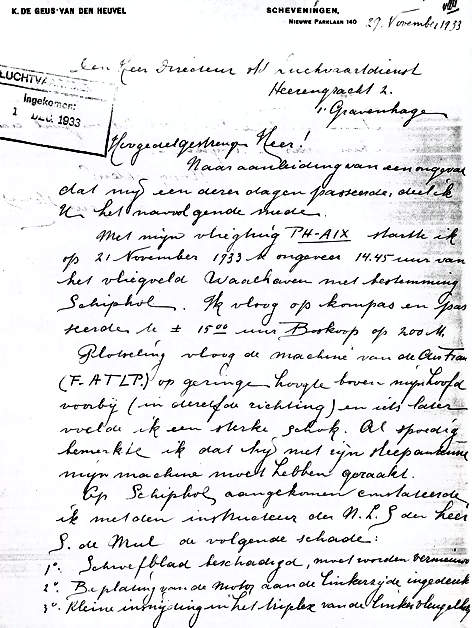 K. DE GEUS-VAN DEN HEUVEL
SCHEVENINGEN,
NIEUWE PARKLAAN 140
27. November 1933
Den Heer Directeur v/d Luchtvaartdienst
Heerengracht 2.
's Gravenhage
LUCHTVA
Ingekomen:
1 DEC. 1933
Hoogedelgestreng Heer!
Naar aanleiding van een ongeval
dat mij een dezer dagen passeerde, deel ik
U het navolgende mede.
Met mijn vliegtuig PH-AIX startte ik
op 21 November 1933 te ongeveer 14.45 uur van
het vliegveld Waalhaven met bestemming
Schiphol. Ik vloog op kompas en pas
seerde te ± 15⁰⁰ uur Boskoop op 200 M.
Plotseling vloog de machine van de Air Fran
(F.ATLP.) op geringe hoogte boven mijn hoofd
voorbij (in dezelfde richting) en iets later
voelde ik een sterke schok. Al spoedig
bemerkte ik dat hij met zijn sleepantenne
mijn machine moet hebben geraakt.
Op Schiphol aangekomen constateerde
ik met den instructeur der N.L.S den heer
S. de Mul de volgende schade:
1°. Schroefblad beschadigd, moet worden vernieuwd
2°. Beplating van de motor aan de linkerzijde ingedeukt
3°. Kleine insnijding in het triplex van de linkervleugel